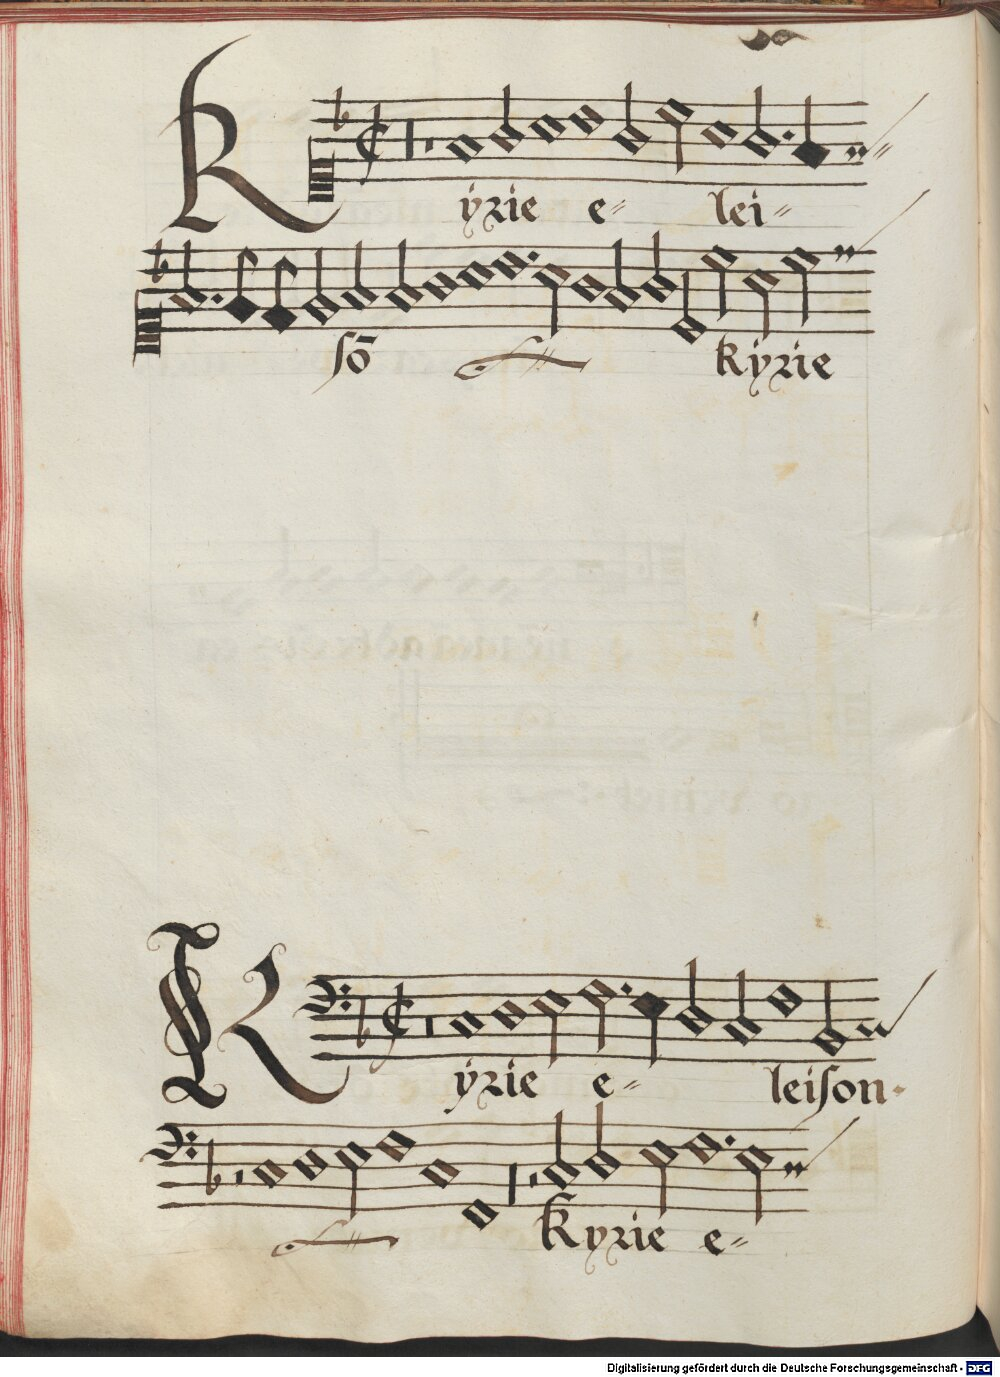 Kyrie e= lei=
sō kyrie
Kyrie e= leiſon.
Kyrie e=
Digitalisierung gefördert durch die Deutsche Forschungsgemeinschaft - DFG